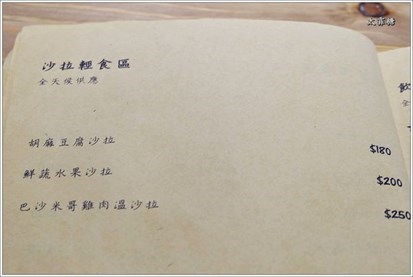 沙拉輕食區
全天候供應
胡麻豆腐沙拉 $180
鮮蔬水果沙拉 $200
巴沙米哥雞肉溫沙拉 $250
飲
全